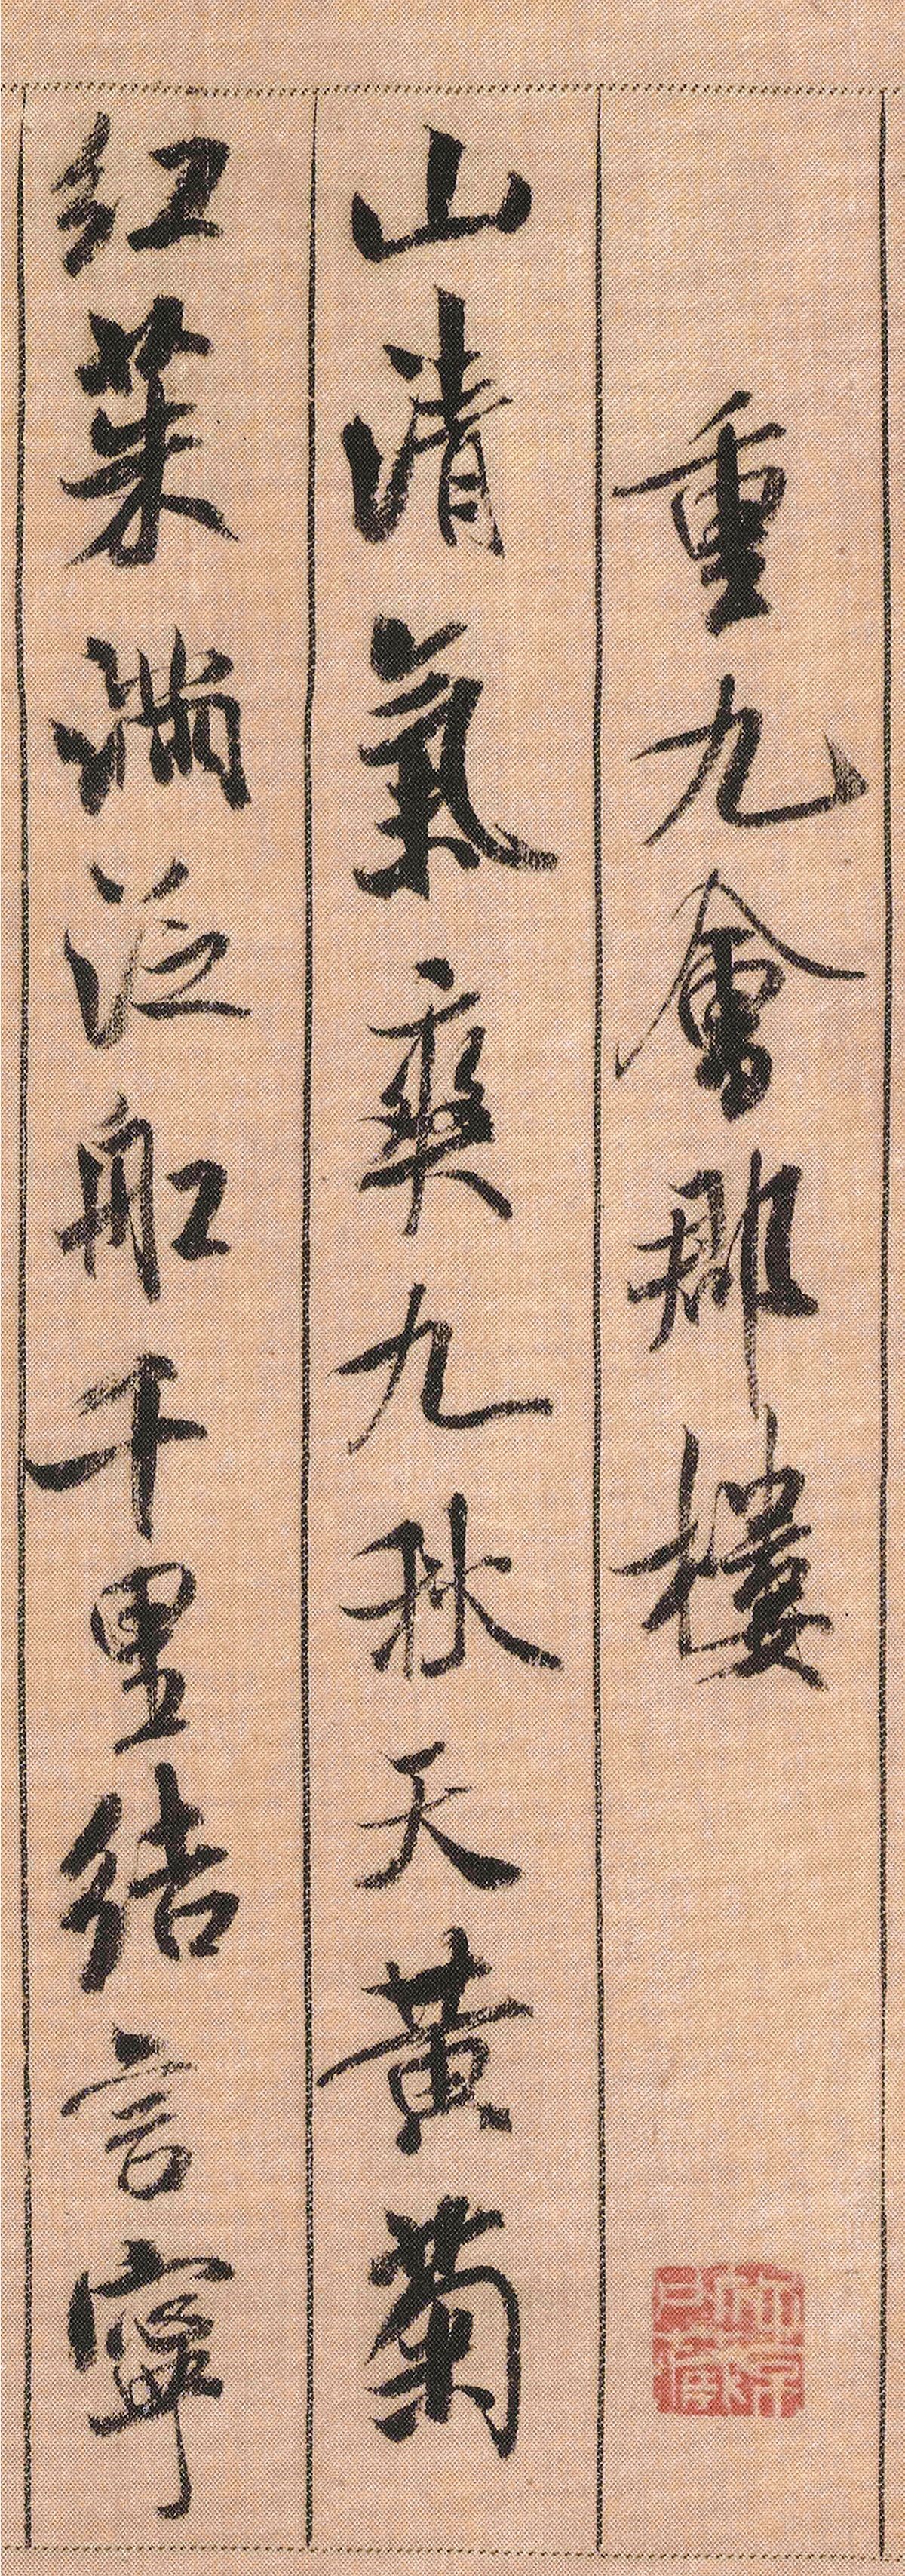 重九會郡樓
山清氣爽九秋天黃菊
紅茱滿泛舡千里結言寧